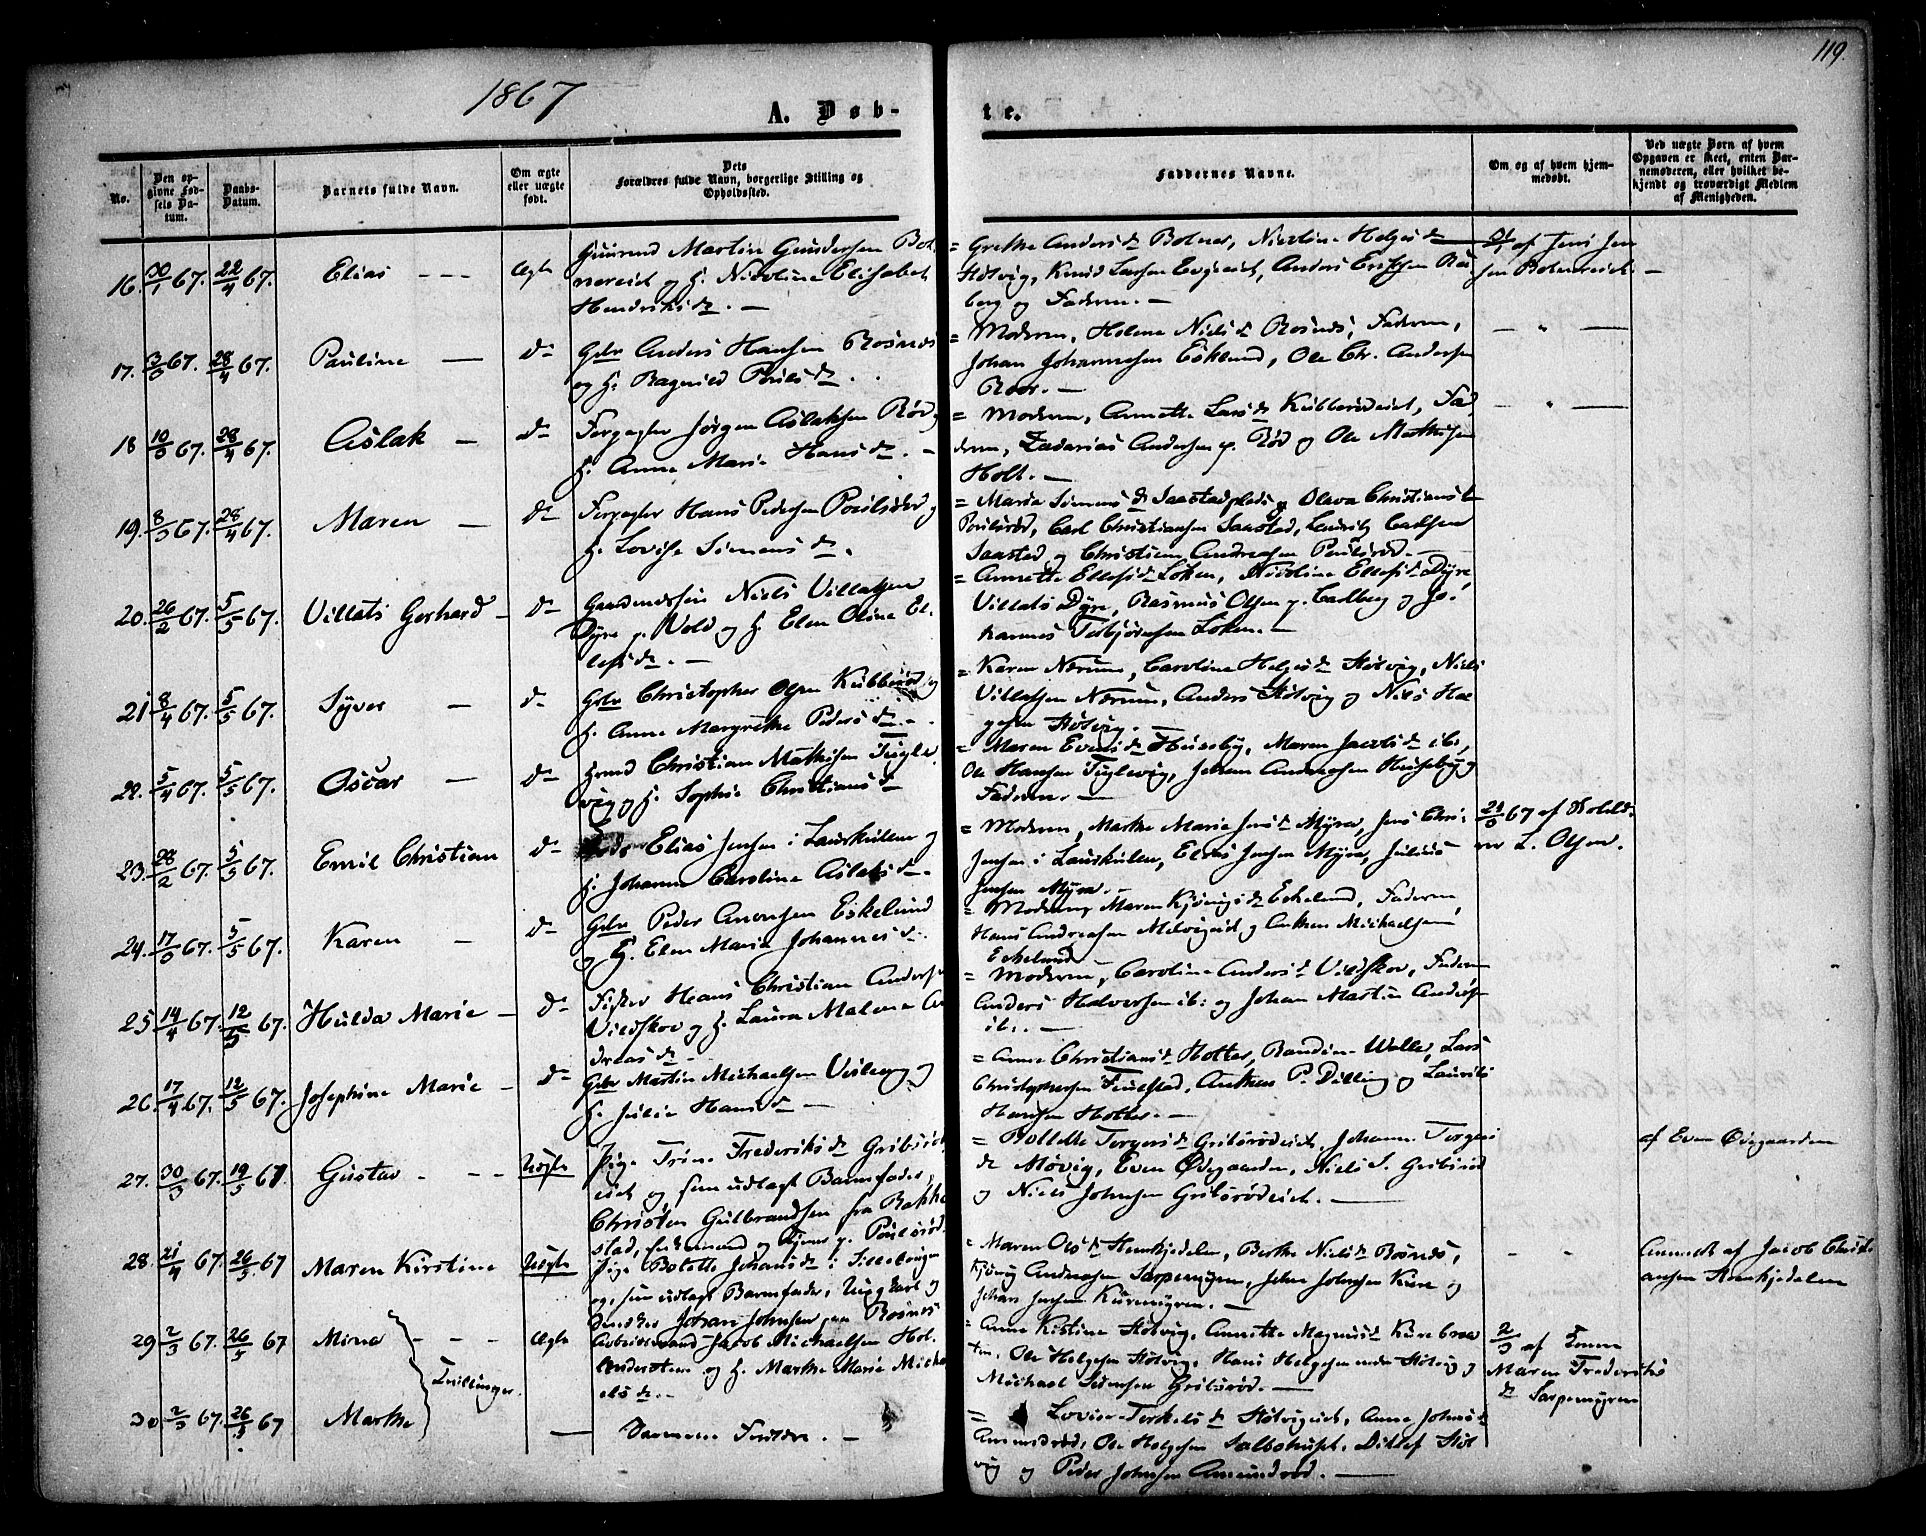 119.
1867
A. Døb-
te.
No.
Den op-
givne Fød-
sels Da-
tum.
Daabs-
Datum.
Barnets fulde Navn.
Om ægte
eller uægte
født.
Dets
Forældres fulde Navn, borgerlige Stilling og
Opholdssted.
Faddernes Navne.
Om og af hvem hjem-
medøbt.
Ved uægte Børn af hvem
Opgaven er skeet, enten Bar-
nemoderen, eller hvilket be-
kjendt og troværdigt Medlem
af Menigheden.
16. 30/1 67. 22/4 67. Elias - - - Ægte
Gaarmd Martin Gundersen Bol
nereiet og H. Nicoline Elisabet
Hendriksdr. -
= Grethe Andersdr Bolner, Nicoline Helgesdr
Støtvig, Knud Larsen Evjeeiet, Anders Eriksen Ra
berg og Faderen. -
af Jens Jen
sen Bolnereiet. -
17. 3/3 67. 28/4 67. Pauline - do
Gdbr Anders Hansen Rosnes
og H. Ragnild Poulsdr.
= Moderen, Helene Nielsdr Rosnes, Faderen,
Johan Johannesen Eskelund, Ole Chr. Andersen
Roer. -
- " -
18 10/3 67. 28/4 67. Aslak - do
Forpagter Jørgen Aslaksen Rød og
H. Anne Marie Hansdr. -
= Moderen, Annette Larsdr Kubberødeiet, Fa
deren, Zacharias Andersen p. Rød og Ole Mathisen
Holt. -
- " -
19. 8/3 67. 28/4 67. Maren - do
Forpagter Hans Pedersen Poulsrød og
H. Lovise Simensdr.
= Maria Simensdr Saastadplads, Oleva Christiansdr
Poulsrød, Carl Christiansen Saastad, Lauritz Carlsen
Saastad og Christian Andreasen Poulsrød. -
20. 26/2 67. 5/5 67. Villats Gerhard - do
Gaardmandssøn Niels Villatsen
Dyre p. Vold og H. Elen Oline El
lefsdr. -
= Annette Ellefsdr Løken, Nicoline Ellefsdr Dyre,
Villats Dyre, Rasmus Olsen p. Carlberg og Jo-
hannes Torbjørnsen Løken. -
21 8/4 67. 5/5 67. Syver - do
Gdbr Christopher Olsen Kubberød og
H. Anne Margrethe Pedersdr. -
= Karen Nærum, Caroline Helgesdr Støtvig, Niels
Villatsen Nærum, Anders Støtvig og Niels Hel
gesen Støtvig. -
22. 5/4 67. 5/5 67. Oscar - do
Grmd Christian Mathisen Fugle
vig og H. Sophie Christiansdr
= Maren Evensdr Huseby, Maren Jacobsdr ib:,
Ole Hansen Fuglevig, Johan Andreasen Huseby og
Faderen. -
23. 28/2 67. 5/5 67. Emil Christian do
Elias Jensen i Laurkullen og
H. Johanne Caroline Aslaksdr. -
= Moderen, Marthe Marie Jensdr Myra, Jens Chr:
Jensen i Laurkullen, Elias Jensen Myra, Julius
Jensen Myra. -
67 af
L. Olsen.
24. 17/3 67. 5/5 67. Karen - do
Gdbr Peder Aronsen Eskelund
og H. Elen Maria Johannesdr
= Moderen, Maren Kjønigsdr Eskelund, Faderen,
Hans Andreasen Melvigeiet og Anthon Michaelsen
Eskelund.
25 14/4 67. 12/5 67. Hulda Marie - do
Fisker Hans Christian Anders
Vildskov og H. Laura Malene An
dreasdr. -
= Moderen, Caroline Andersdr Vildskov, Faderen
Anders Halvorsen ib: og Johan Martin Anders
ib:. -
26. 17/4 67. 12/5 67. Josephine Marie - do
Gdbr Martin Michaelsen Veiberg og
H. Julie Hansdr -
= Anne Christiansdr Holter, Wolle, Lars
Christophersen Fuglestad, Anthon P. Dilling og Laurits
Hansen Holter. -
27. 30/3 67. 19/5 67 Gustav - - - Uægte
Pige Trine Frederiksdr Gribsrød
eiet og som udlagt Barnefader,
Christen Gulbrandsen fra Rakke
stad, p. Poulsrød
= Bolette Torgersdr Gribsrødeiet, Johanne Torgers
dr Møvig, Even Ødegaarden, Niels S. Gribsrød
og Niels Johnsen Gribsrødeiet. -
af Even Ødegaarden
28. 21/4 67. 26/5 67 Maren Kirstine Uægte
Pige Bolette Johansdr i Tillebuugen
og, som udlagt Barnefader, Ungkarl og
Svensker Johan Johnsen paa Rosnes
= Maren Olsdr Stenkjedelen, Berthe Nielsdr Rosnes,
Kjønig Andreasen Sarpemyren, John Johnsen Kure og
Johan Jensen Kuremyren. -
- -
Anmeldt af Jacob Christi
ansen Stenkjedelen
29 2/3 67. 26/5 67 Mina - - - Ægte
Arbeidsmand Jacob Michaelsen Hol
lenderstuen og H. Marthe Marie Micha
elsdr. -
= Anne Kistine Støtvig, Annette Magnusdr Kure
Ole Helgesen Støtvig, Hans Helgesen nedre Støtvig og
Michael Simensen Gribsrød. -
2/3 af Konen
Maren Frederiks
dr Sarpemyren
Tvillinger.
30 2/3 67. 26/5 67 Marthe -
Sammene Forældre. -
= Lovise Terkelsdr Støtvigeiet, Anne Johnsdr
Amundrød, Ole Helgesen Saltoholst, Ditlef Støt
vig og Peder Johnsen Amundrød. -